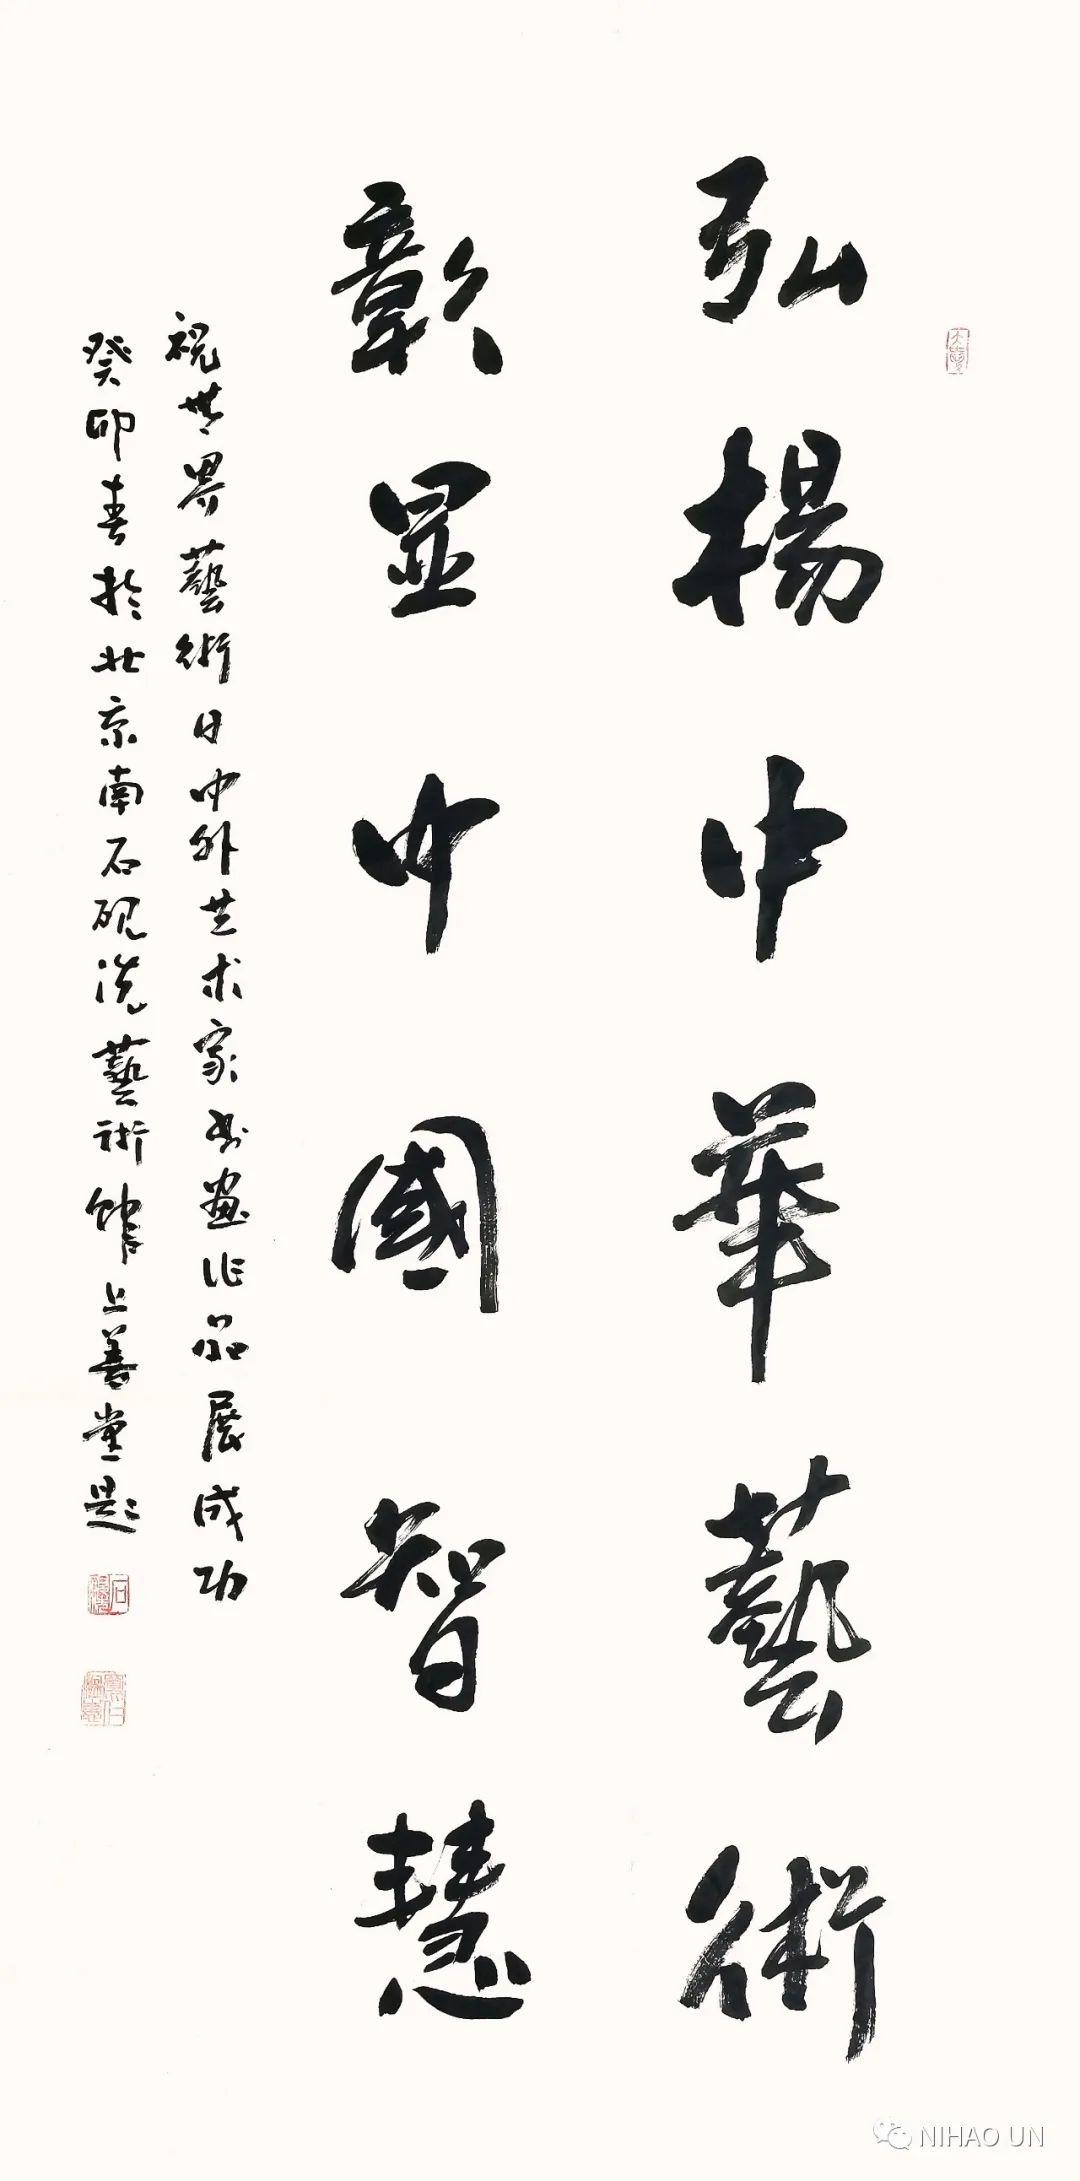 弘揚中華藝術
彰显中國智慧
祝世界藝術日中外艺术家书画作品展成功
癸卯春於北京南石砚洗藝術館上善堂题
NIHAO UN